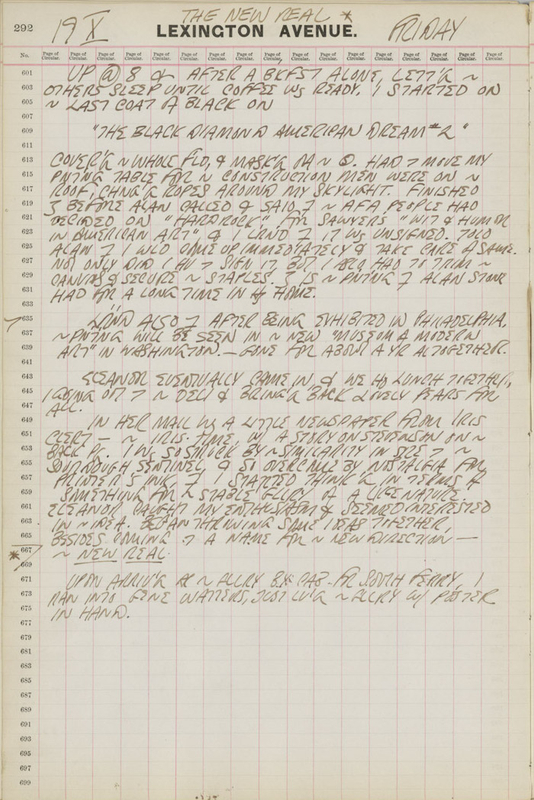 292
19 X
THE NEW REAL *
FRIDAY
LEXINGTON AVENUE.
No. Page of Circular. Page of Circular. Page of Circular. Page of Circular. Page of Circular. Page of Circular. Page of Circular. Page of Circular. Page of Circular. Page of Circular. Page of Circular. Page of Circular. Page of Circular. Page of Circular. Page of Circular. Page of Circular. Page of Circular.
601 UP @ 8 & AFTER A BKFST ALONE, LETT'G ~
603 OTHERS SLEEP UNTIL COFFEE WS READY. I STARTED ON
605 ~ LAST COAT OF BLACK ON
607
609 "THE BLACK DIAMOND AMERICAN DREAM #2"
611
613 COVER'G ~ WHOLE FLD, & MASK'G ~ HAD MOVE MY
615 PNTING TABLE FOR ~ CONSTRUCTION MEN WERE ON ~
617 ROOF, ROPES AROUND MY SKYLIGHT. FINISHED
619 BEFORE ALAN CALLED & SAID ~ AFA PEOPLE HAD
621 DECIDED ON "HARD ROCK" FOR SAWYERS "WIT & HUMOR
623 IN AMERICAN ART" & IT WS UNSIGNED. TOLD
625 ALAN I WLD COME UP IMMEDIATELY & TAKE CARE OF SAME.
627 NOT ONLY DID I SIGN IT BUT I ALSO HAD TO TRIM ~
629 CANVAS & SECURE ~ STAPLES. IS ~ PNTING ALAN STONE
631 HAD FOR A LONG TIME IN HOME.
633
635 ALSO AFTER BEING EXHIBITED IN PHILADELPHIA,
637 ~ PNTING WILL BE SEEN IN ~ NEW "MUSEUM OF MODERN
639 ART" IN WASHINGTON. — GONE FOR ABOUT A YR ALTOGETHER.
641
643 ELEANOR EVENTUALLY CAME IN & WE HD LUNCH TOGETHER,
645 I GOING OUT ~ DELI & BRING'G BACK LOVELY PEARS FOR
647 ALL.
649 IN HER MAIL WS A LITTLE NEWSPAPER FROM IRIS
651 CLERT — ~ IRIS-TIME, W/ A STORY ON STEVENSON ON ~
653 BACK PG. I WS SO STRUCK BY ~ SIMILARITY IN SIZE ~
655 SOURDOUGH SENTINEL & SO OVERCOME BY NOSTALGIA FOR
657 PRINTER'S INK I STARTED THINK'G IN TERMS OF
659 SOMETHING FOR ~ STABLE GLLRY OF A LIKE NATURE.
661 ELEANOR CAUGHT MY ENTHUSIASM & SEEMED INTERESTED
663 IN ~ IDEA. BEGAN THROWING SOME IDEAS TOGETHER,
665 BESIDES COMING A NAME FOR ~ NEW DIRECTION —
667 ~ NEW REAL.
* 669
671 UPON ARRIV'G ~ GLLRY BY CAB FR SOUTH FERRY, I
673 RAN INTO GENE WATTERS, JUST LV'G ~ GLLRY W/ POSTER
675 IN HAND.
677
679
681
683
685
687
689
691
693
695
697
699